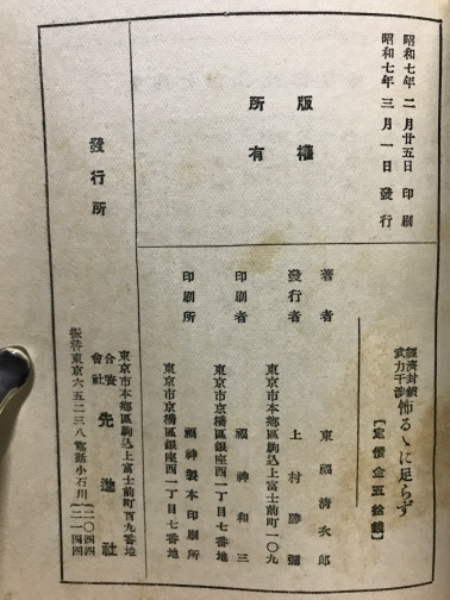 昭和七年二月廿五日印刷
昭和七年三月一日發行
版權
所有
經濟封鎖
武力干涉
怖るゝに足らず
【定價金五拾錢】
著者 東福清次郎
發行者 上村勝彌
東京市本鄉區駒込上富士前町一〇九
印刷者 福神和三
東京市京橋區銀座西一丁目七番地
印刷所 福神製本印刷所
東京市京橋區銀座西一丁目七番地
發行所
東京市本鄉區駒込上富士前町百九番地
合資會社 先進社
振替東京六五二三八
電話小石川